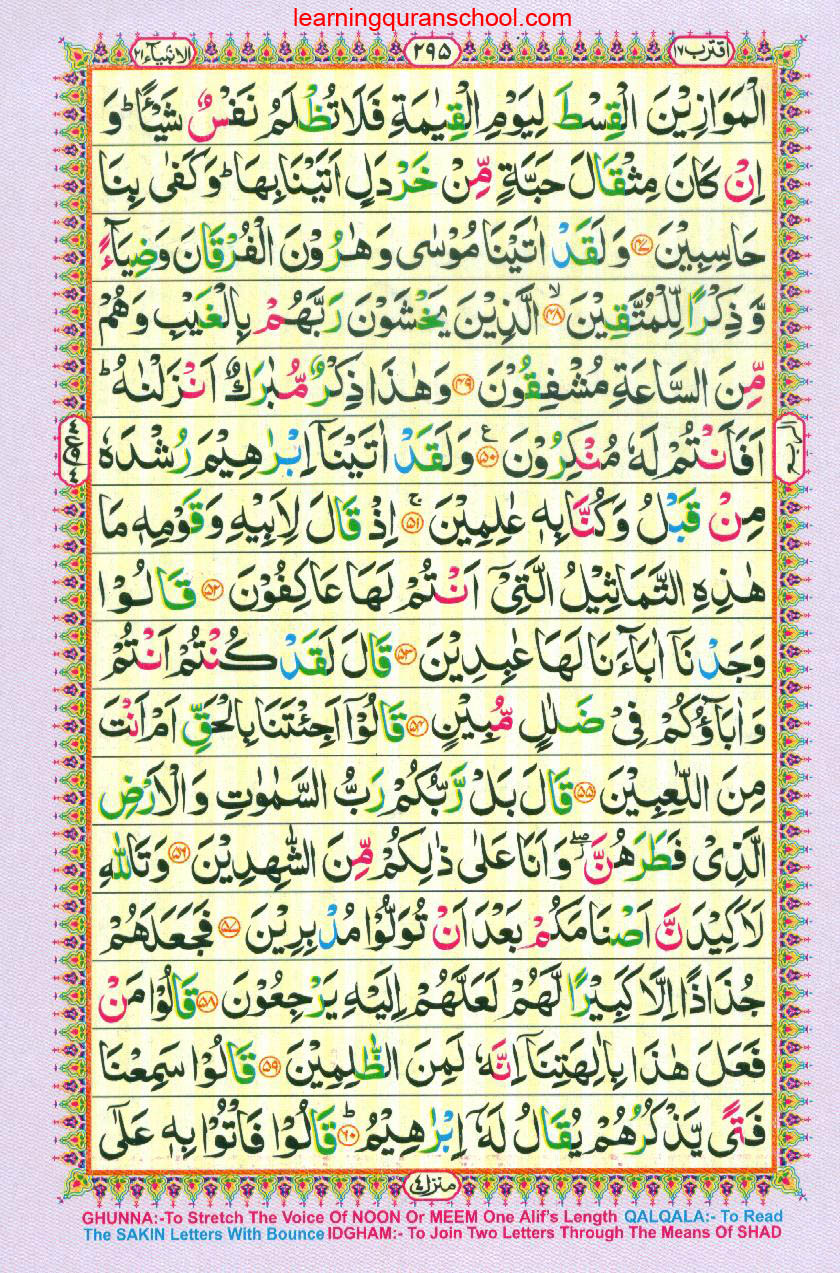 learningquranschool.com
اقترب ١٧
٢٩٥
الانبیآء ٢١
الْمَوَازِيْنَ الْقِسْطَ لِيَوْمِ الْقِيٰمَةِ فَلَا تُظْلَمُ نَفْسٌ شَيْـًٔا ؕ وَ
اِنْ كَانَ مِثْقَالَ حَبَّةٍ مِّنْ خَرْدَلٍ اَتَيْنَا بِهَا ؕ وَكَفٰى بِنَا
حَاسِبِيْنَ ﴿٤٧﴾ وَلَقَدْ اٰتَيْنَا مُوْسٰى وَهٰرُوْنَ الْفُرْقَانَ وَضِيَآءً
وَّذِكْرًا لِّلْمُتَّقِيْنَ ۙ ﴿٤٨﴾ الَّذِيْنَ يَخْشَوْنَ رَبَّهُمْ بِالْغَيْبِ وَهُمْ
مِّنَ السَّاعَةِ مُشْفِقُوْنَ ﴿٤٩﴾ وَهٰذَا ذِكْرٌ مُّبٰرَكٌ اَنْزَلْنٰهُ ؕ
اَفَاَنْتُمْ لَهٗ مُنْكِرُوْنَ ﴿٥٠﴾ ع وَلَقَدْ اٰتَيْنَاۤ اِبْرٰهِيْمَ رُشْدَهٗ
مِنْ قَبْلُ وَكُنَّا بِهٖ عٰلِمِيْنَ ۚ ﴿٥١﴾ اِذْ قَالَ لِاَبِيْهِ وَقَوْمِهٖ مَا
هٰذِهِ التَّمَاثِيْلُ الَّتِيْۤ اَنْتُمْ لَهَا عَاكِفُوْنَ ﴿٥٢﴾ قَالُوْا
وَجَدْنَاۤ اٰبَآءَنَا لَهَا عٰبِدِيْنَ ﴿٥٣﴾ قَالَ لَقَدْ كُنْتُمْ اَنْتُمْ
وَاٰبَآؤُكُمْ فِيْ ضَلٰلٍ مُّبِيْنٍ ﴿٥٤﴾ قَالُوْۤا اَجِئْتَنَا بِالْحَقِّ اَمْ اَنْتَ
مِنَ اللّٰعِبِيْنَ ﴿٥٥﴾ قَالَ بَلْ رَّبُّكُمْ رَبُّ السَّمٰوٰتِ وَالْاَرْضِ
الَّذِيْ فَطَرَهُنَّ ۖ وَاَنَا عَلٰى ذٰلِكُمْ مِّنَ الشّٰهِدِيْنَ ﴿٥٦﴾ وَتَاللّٰهِ
لَاَكِيْدَنَّ اَصْنَامَكُمْ بَعْدَ اَنْ تُوَلُّوْا مُدْبِرِيْنَ ﴿٥٧﴾ فَجَعَلَهُمْ
جُذَاذًا اِلَّا كَبِيْرًا لَّهُمْ لَعَلَّهُمْ اِلَيْهِ يَرْجِعُوْنَ ﴿٥٨﴾ قَالُوْا مَنْ
فَعَلَ هٰذَا بِاٰلِهَتِنَاۤ اِنَّهٗ لَمِنَ الظّٰلِمِيْنَ ﴿٥٩﴾ قَالُوْا سَمِعْنَا
فَتًى يَّذْكُرُهُمْ يُقَالُ لَهٗۤ اِبْرٰهِيْمُ ؕ ﴿٦٠﴾ قَالُوْا فَاْتُوْا بِهٖ عَلٰٓى
منزل ٤
GHUNNA:-To Stretch The Voice Of NOON Or MEEM One Alif's Length QALQALA:- To Read
The SAKIN Letters With Bounce IDGHAM:- To Join Two Letters Through The Means Of SHAD